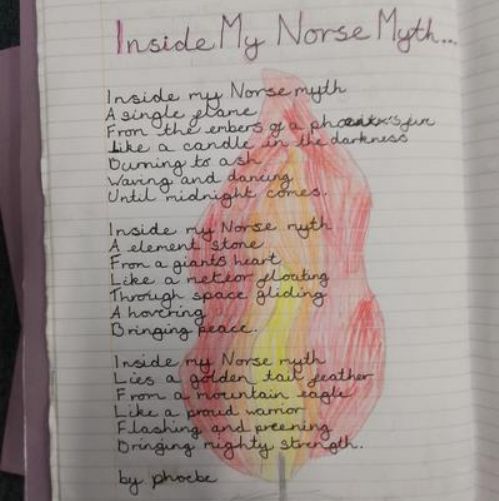 Inside My Norse Myth...
Inside my Norse myth
A single flame
From the embers of a phoenix's fire
Like a candle in the darkness
Burning to ash
Waving and dancing
Until midnight comes.
Inside my Norse myth
A element stone
From a giants heart
Like a meteor floating
Through space gliding
A hovering
Bringing peace.
Inside my Norse myth
Lies a golden tail feather
From a mountain eagle
Like a proud warrior
Flashing and preening
Bringing mighty strength.
by phoebe